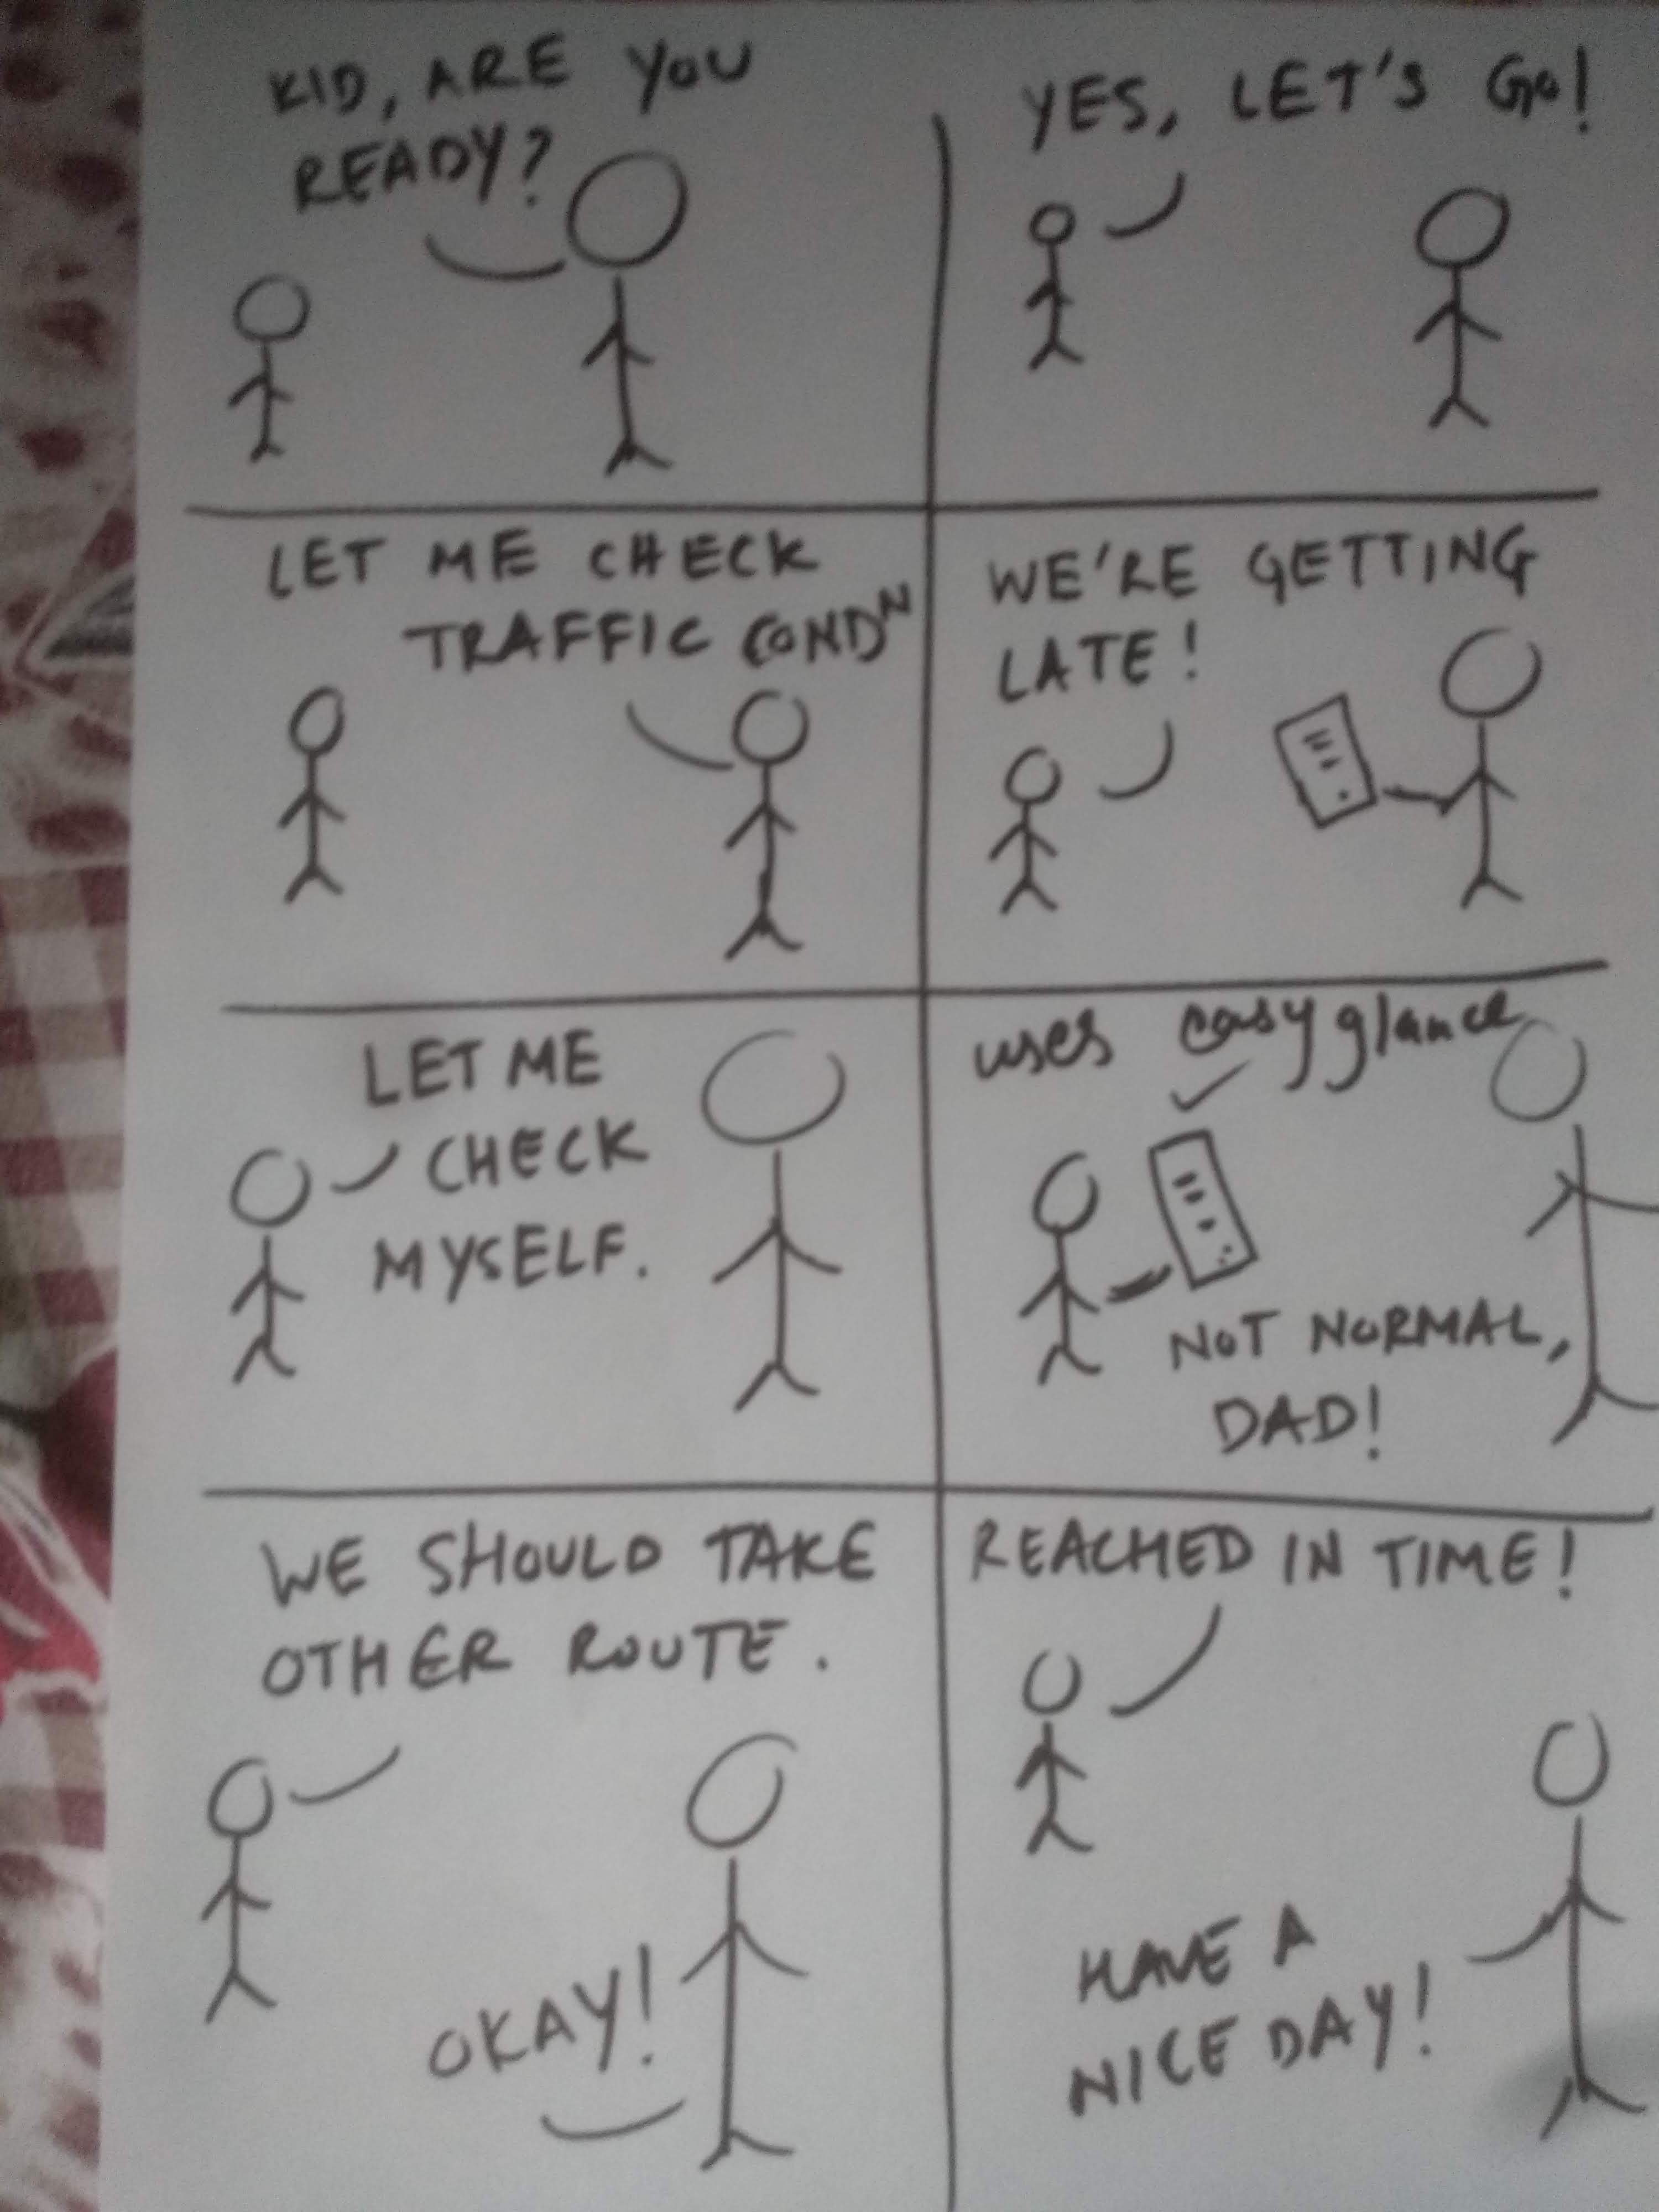 KID, ARE YOU
READY?
YES, LET'S GO!
LET ME CHECK
TRAFFIC CONDN
WE'RE GETTING
LATE!
LET ME
CHECK
MYSELF.
uses easyglance
NOT NORMAL,
DAD!
WE SHOULD TAKE
OTHER ROUTE.
OKAY!
REACHED IN TIME!
HAVE A
NICE DAY!